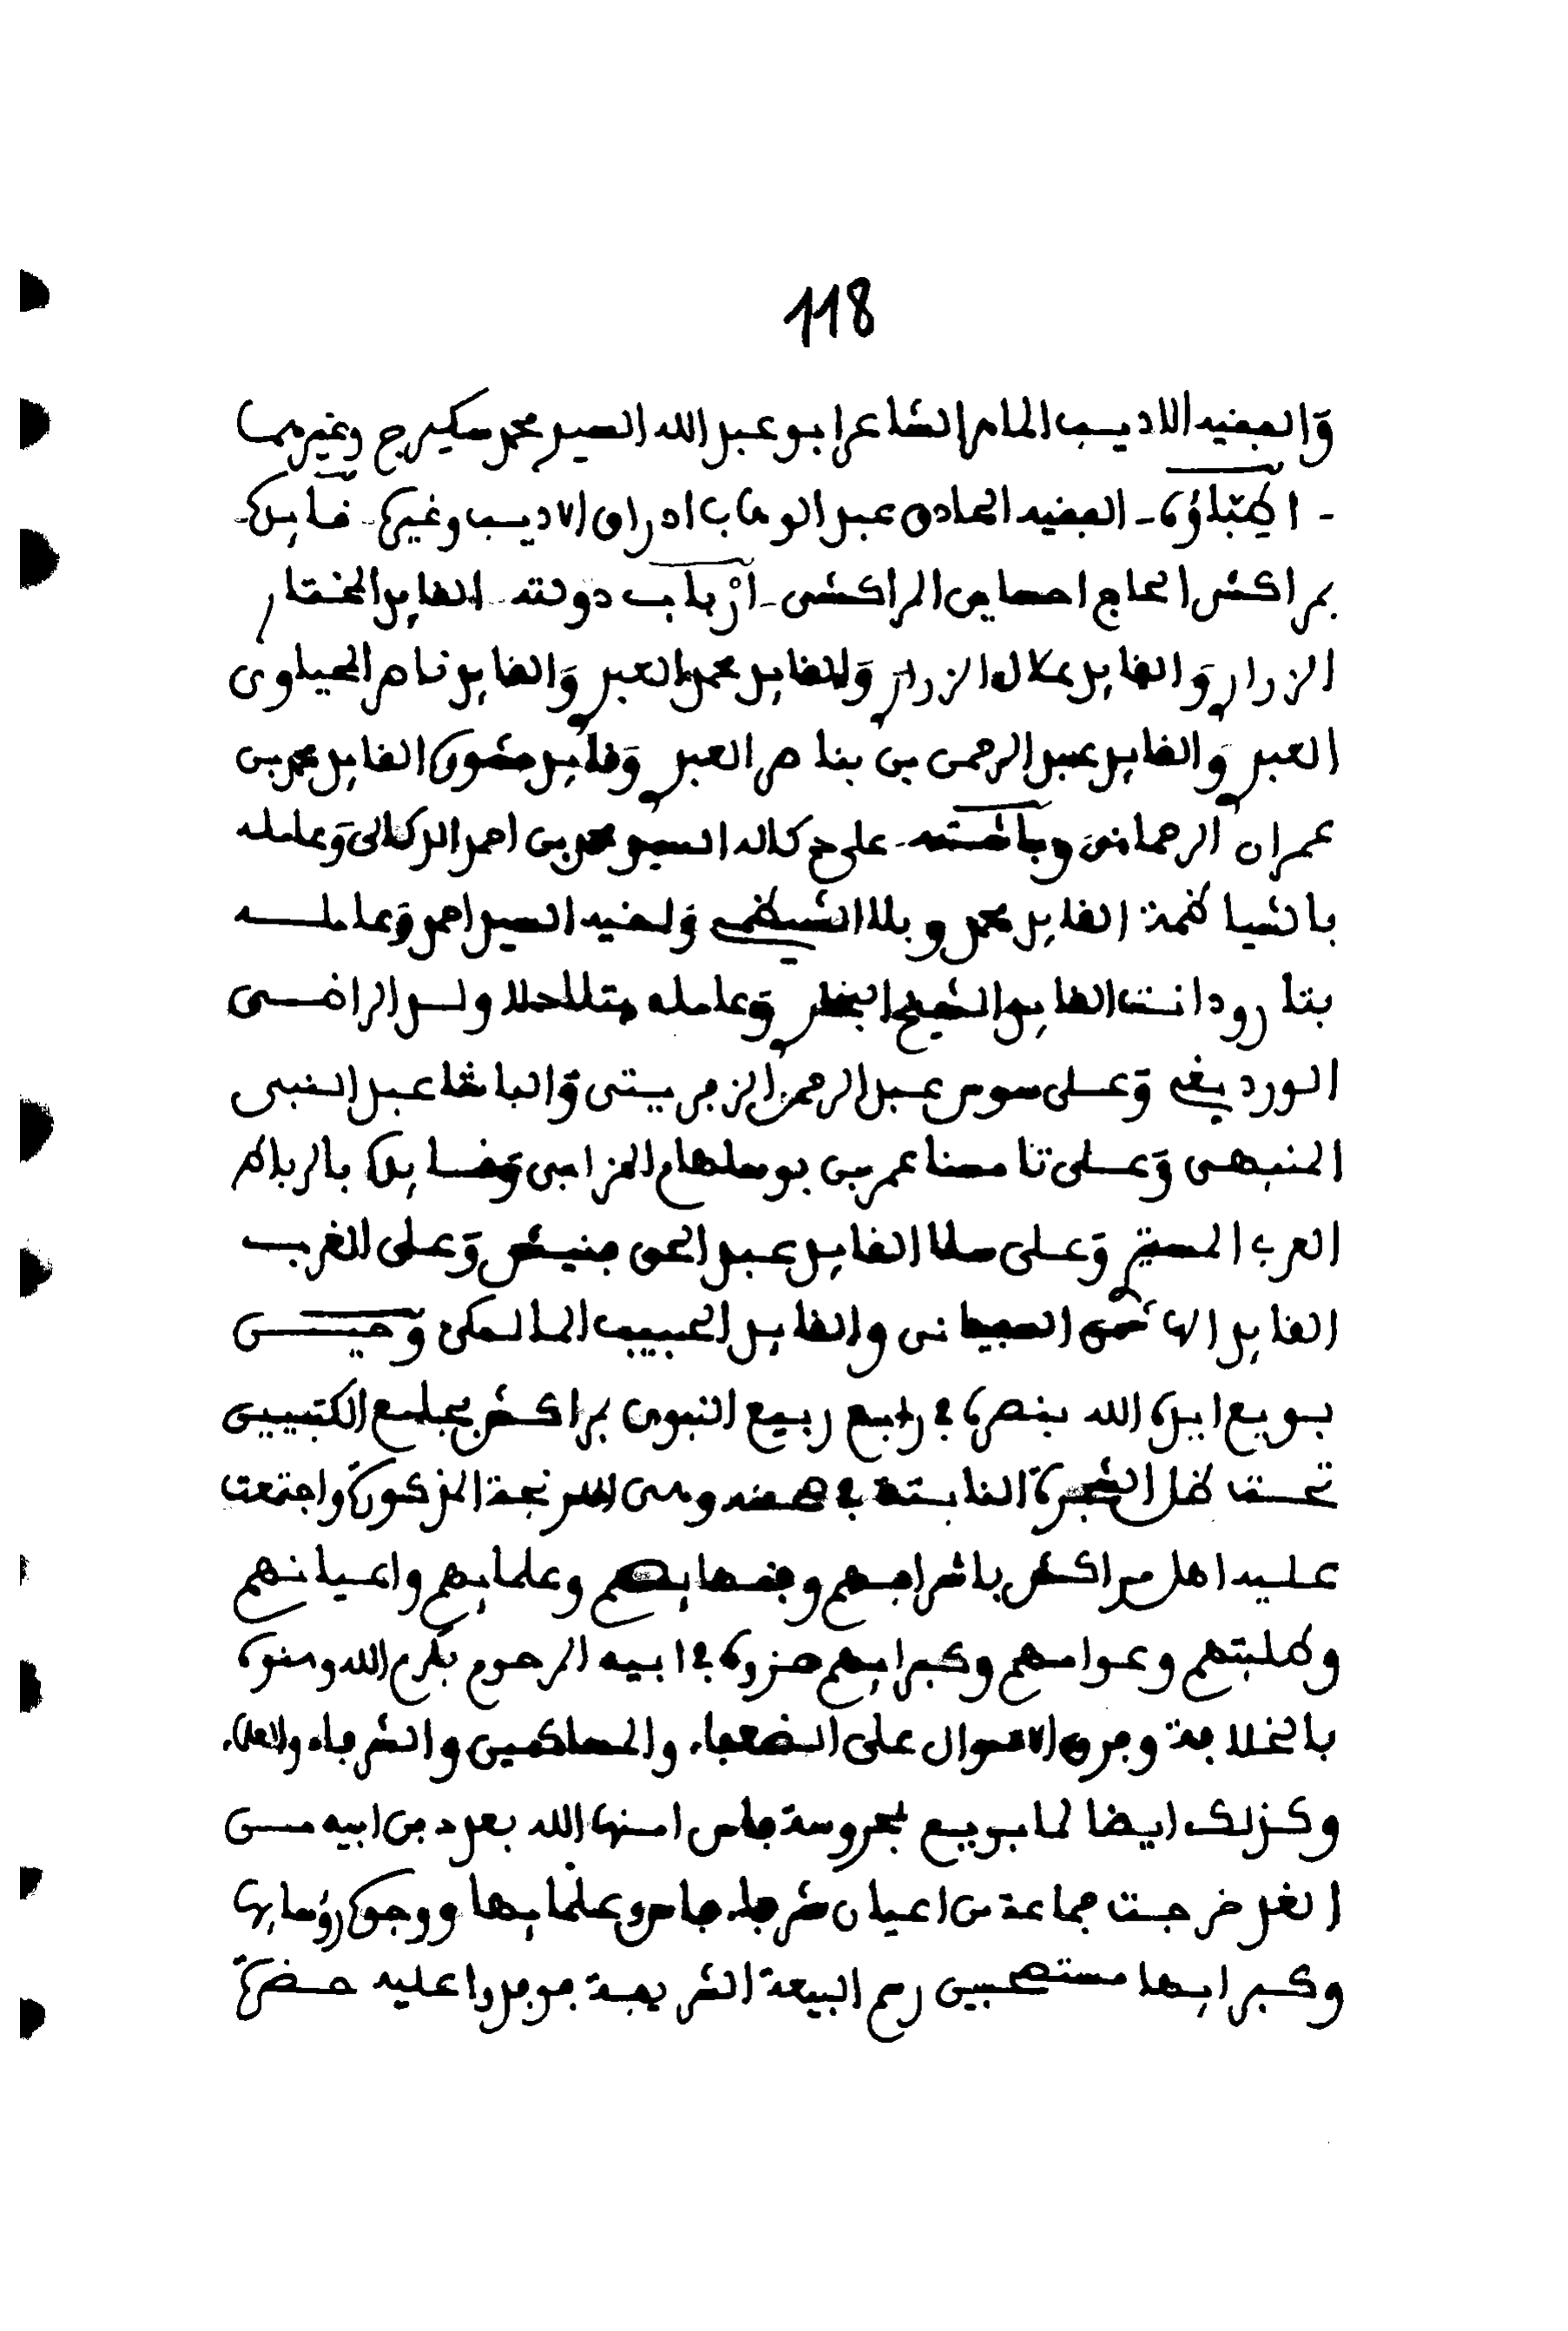 118
والفقيه الاديب الماهر الشاعر ابو عبد الله السيد محمد سكيرج وغيرهما
- اطباؤه - الفقيه الحاذق عبد الوهاب ادراق الاديب وغيره - قايده
بمراكش الحاج احساين المراكشى - ارباب دولته - القايد المختار
الزرارى والقايد علال الزرارى والقايد محمد العبدى والقايد ناصر الجيلاوى
العبدى والقايد عبد الرحمن بن بناصر العبدى وقايد مشوره القايد محمد بن
عمران الرحمانى وباشته - على دكالة السيد محمد بن احمد الدكالى وعامله
بالشياظمة القايد محمد وبلا الشيظمى ولفيه السيد احمد وعامله
بتارودانت القايد الشيخ البخارى وعامله بتادلا ولد الراضى
الورديغى وعلى سوس عبد الرحمن الزمريتى والباشا عبد النبى
المنبهى وعلى تامسنا عمر بن بوسلهام المزابى وقايده بالرباط
العربى المستيرى وعلى سلا القايد عبد الحق فنيش وعلى الغرب
القايد الهاشمى السفيانى والقايد الحبيب المالكى وحين
بويع ايده الله بنصره في رابع ربيع النبوى بمراكش بجامع الكتبيين
تحت ظل الشجرة النابتة في صحنه ومن المذكورة واجتمعت
عليه اهل مراكش باشرافهم وفقهايهم وعلمايهم واعيانهم
وطلبتهم وعوامهم وكبرايهم عزوه في ابيه المرحوم بكرم الله وهنوه
بالخلافة وفرق الاموال على الضعفاء والمساكين والشرفاء والعلماء
وكذلك ايضا لما بويع بمحروسة فاس امنها الله بعد دفن ابيه من
الغد خرجت جماعة من اعيان شرفاء فاس وعلمايها ووجوه رؤسايها
وكبرايها مستصحبين رسم البيعة الشريفة فوفدوا عليه حضرة